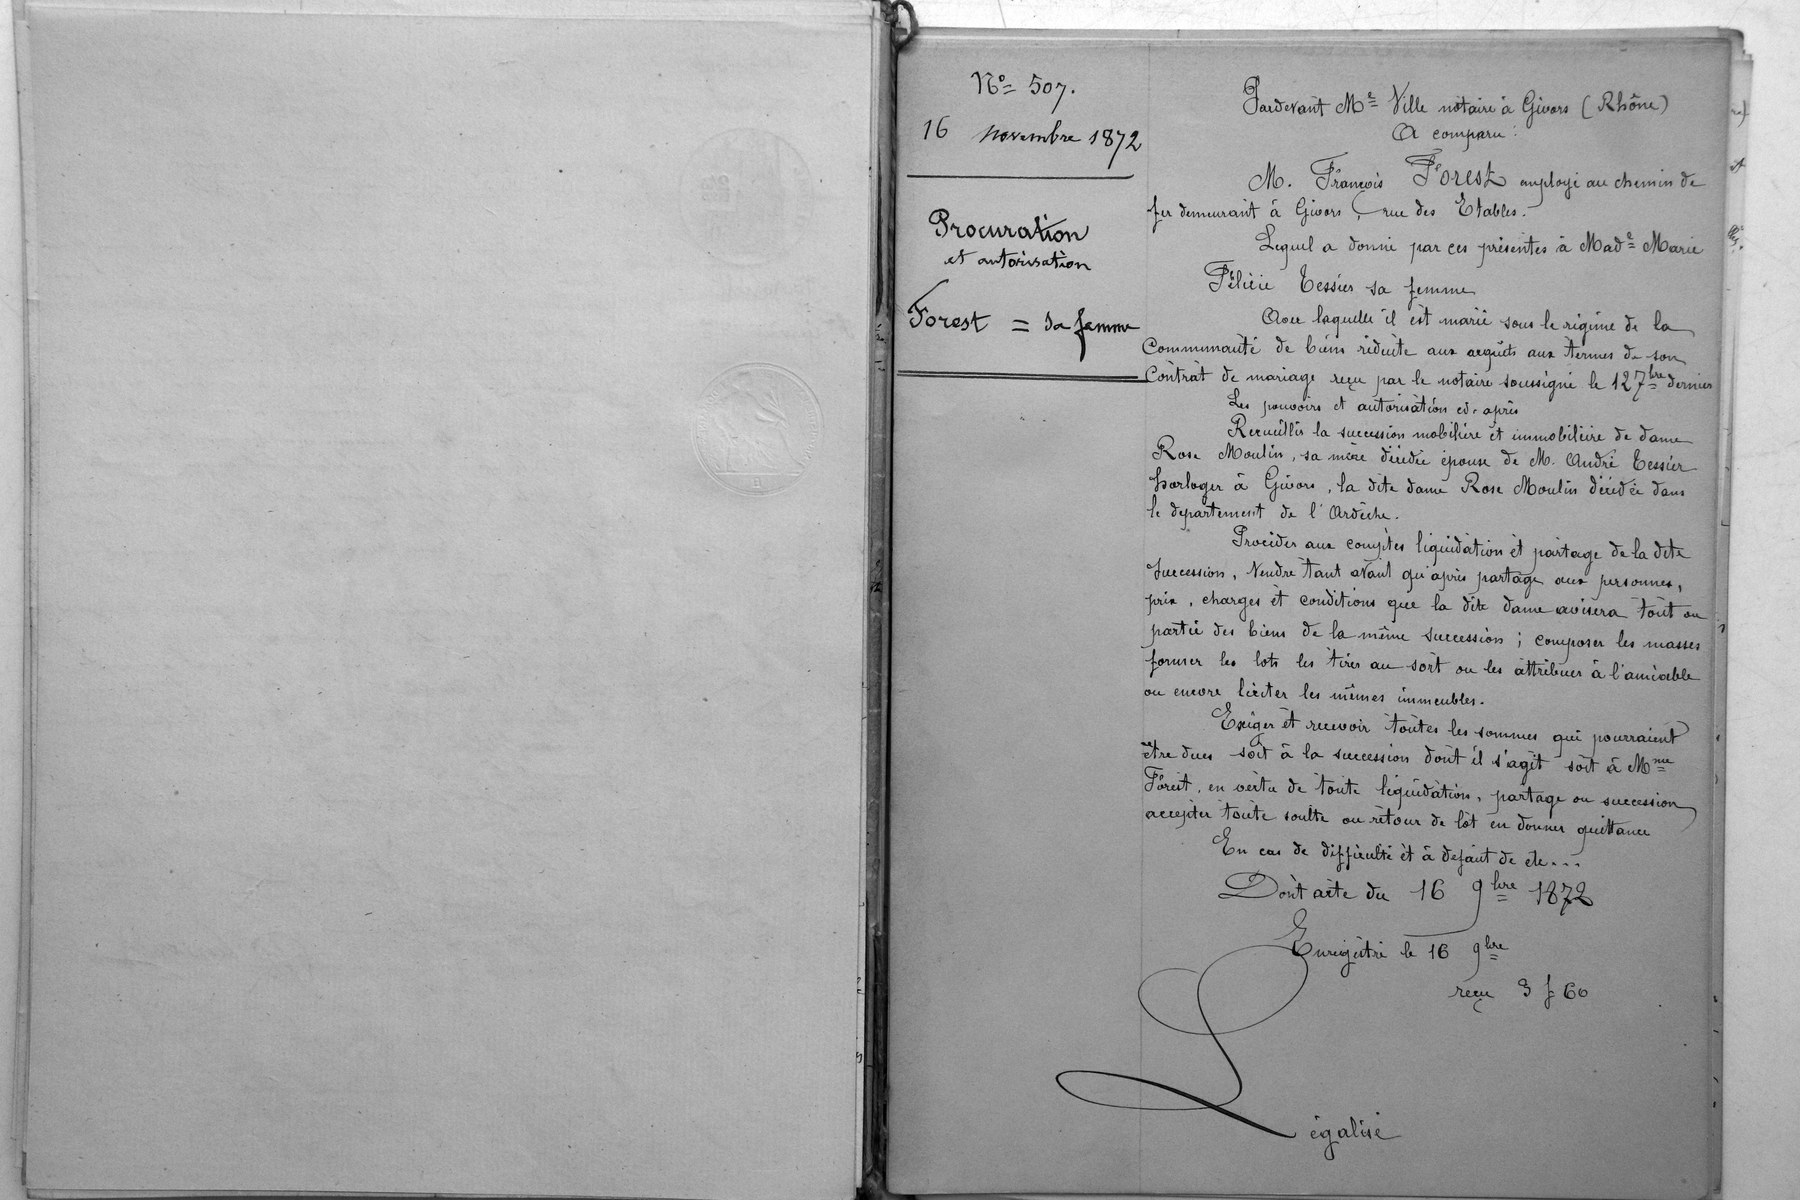 N° 507.
16 novembre 1872
Procuration
et autorisation
Forest = sa femme
Pardevant Me Ville notaire à Givors (Rhône)
A comparu :
M. François Forest employé au chemin de
fer demeurant à Givors, rue des Etables.
Lequel a donné par ces présentes à Made Marie
Félicie Tessier sa femme
Avec laquelle il est marié sous le régime de la
Communauté de biens réduite aux acquêts aux termes de son
Contrat de mariage reçu par le notaire soussigné le 12 7bre dernier
Les pouvoirs et autorisation ci-après
Recueillir la succession mobilière et immobilière de dame
Rose Moulin, sa mère décédée épouse de M. André Tessier
horloger à Givors, la dite dame Rose Moulin décédée dans
le departement de l'Ardèche.
Procéder aux comptes liquidation et partage de la dite
succession, Vendre tant avant qu'après partage aux personnes,
prix, charges et conditions que la dite dame avisera tout ou
partie des biens de la même succession ; composer les masses
former les lots les tirer au sort ou les attribuer à l'amiable
ou encore liciter les mêmes immeubles.
Exiger et recevoir toutes les sommes qui pourraient
être dues soit à la succession dont il s'agit soit à Mme
Forest, en vertu de toute liquidation, partage ou succession
accepter toute soulte ou retour de lot en donner quittance
En cas de difficulté et à defaut de etc...
Dont acte du 16 9bre 1872
Enregistré le 16 9bre
reçu 3 f 60
Légalisé